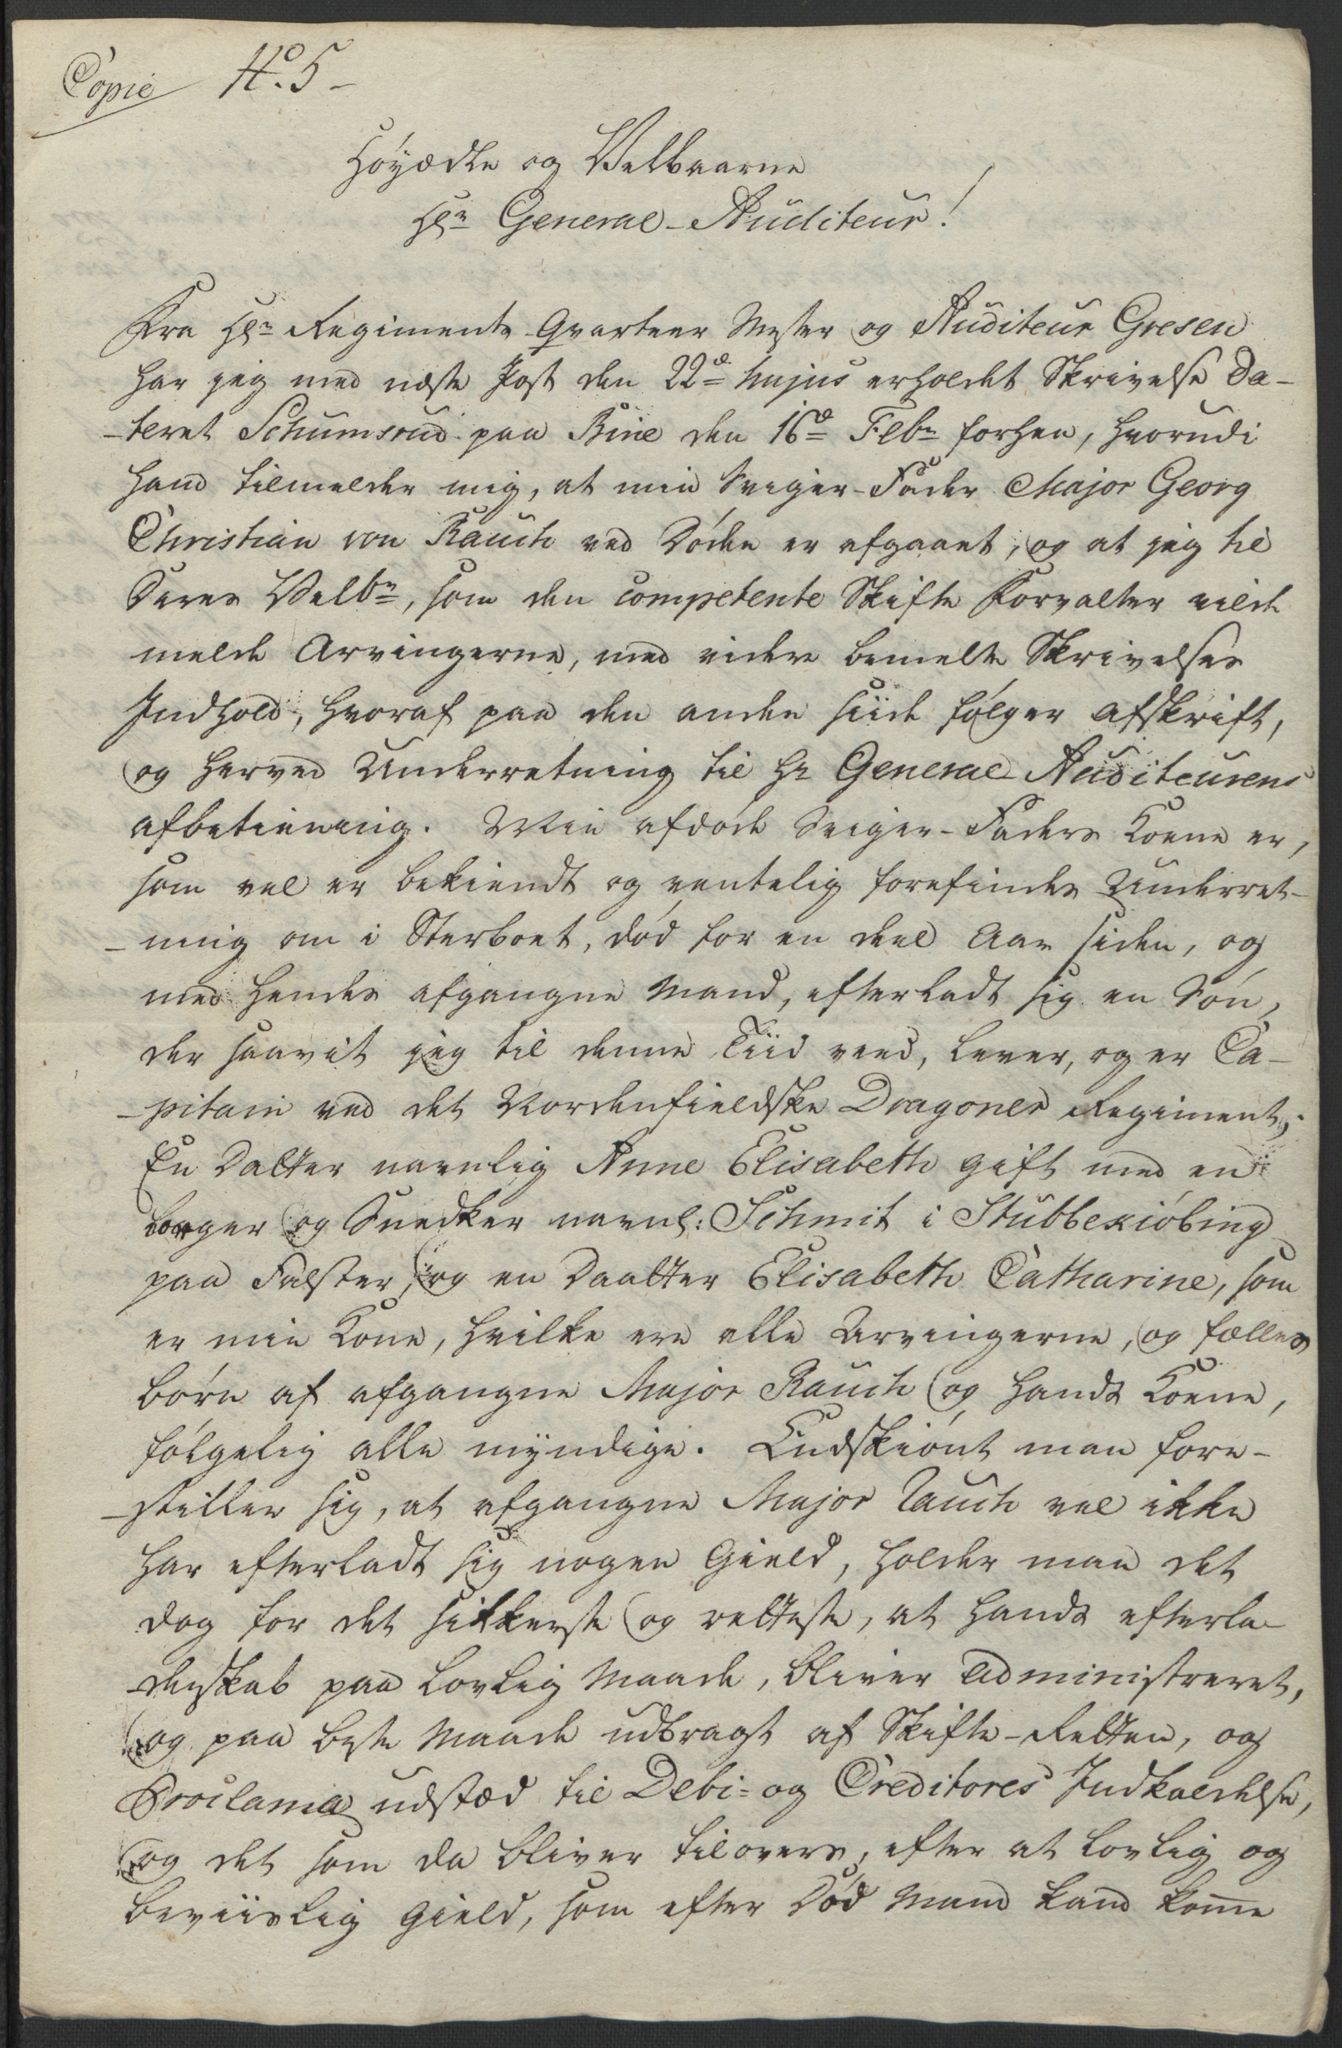 Copie No. 5
Höyædle og Velbaarne
Hr General-Auditeur!
Fra Hr Regiments Qvarteer Mester og Auditeur Gresen
har jeg med næste Post den 22de hujus erholdet Skrivelse Da-
-teret Schumsrud paa den 16de Febr forhen, hvorudi
hand tilmelder mig, at min Sviger-Fader Major Georg
Christian von Rauch ved Døden er afgaaet, og at jeg til
Deres Velbr, som den competente Skifte Forvalter vilde
melde Arvingerne, med videre bemelte Skrivelses
Indhold, hvoraf paa den anden siide følger Afskrift,
og herved Underretning til Hr General-Auditeurens
afbetiening. Min afdøde Sviger-Faders Koene er,
som vel er bekiendt og ventelig forefindes Underret-
-ning om i Sterboet, død for en deel Aar siden, og
med hendes afgangne Mand, efterladt sig en Søn,
der saavit jeg til denne Tiid veed, lever, og er Ca-
-pitain ved det Nordenfieldske Dragoner Regiment;
En Datter navnlig Anne Elisabeth gift med en
borger og Snedker navnl: Schmit i Stubbekiöbing
paa Falster, og en Daatter Elisabeth Catharine, som
er min Kone, hvilke ere alle Arvingerne, og fælles
børn af afgangne Major Rauch og hands Koene,
følgelig alle myndige. Endskiönt man fore-
-stiller sig, at afgangne Major Rauch vel ikke
har efterladt sig nogen Gield, holder man det
dog for det sikkerste og retteste, at hands efterla-
-denskab paa lovlig Maade, bliver Administreret,
og paa beste Maade udbragt af Skifte-Retten, og
Proclama udstæd til Debi- og Creditores Indkaldelse,
og det som da bliver tilovers, efter at lovlig og
beviislig Gield, som efter Død Mand kand komme